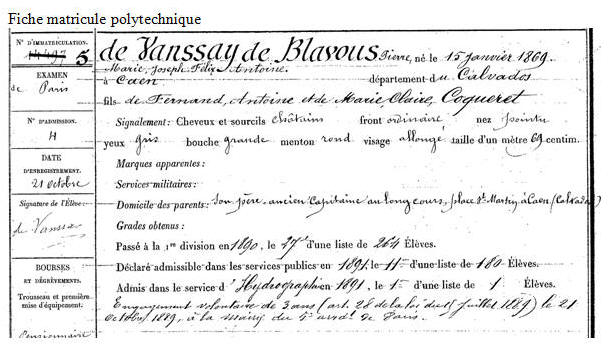 Fiche matricule polytechnique
N° D'IMMATRICULATION.
14497 5
EXAMEN
de Paris
N° D'ADMISSION.
4
DATE
D'ENREGISTREMENT.
21 octobre
Signature de l'Élève :
de Vanssay
BOURSES
ET DÉGRÈVEMENTS.
Trousseau et première
mise d'équipement.
Pensionnaire
de Vanssay de Blavous Pierre, né le 15 janvier 1869.
Marie, Joseph Félix Antoine.
à Caen département du Calvados
fils de Fernand, Antoine et de Marie Claire, Coqueret
Signalement: Cheveux et sourcils châtains front ordinaire nez pointu
yeux gris bouche grande menton rond visage allongé taille d'un mètre 69 centim.
Marques apparentes :
Services militaires :
Domicile des parents: Son père, ancien Capitaine au long cours, place St Martin à Caen (Calvados)
Grades obtenus :
Passé à la 1re division en 1890, le 27e d'une liste de 264 Élèves.
Déclaré admissible dans les services publics en 1891, le 11e d'une liste de 180 Élèves.
Admis dans le service d'Hydrographie en 1891, le 1er d'une liste de 1 Élèves.
Engagement volontaire de 3 ans (art. 28 de la loi du Juillet 1889) le 21
Octobre 1889, à la mairie du 5e arrdt de Paris.